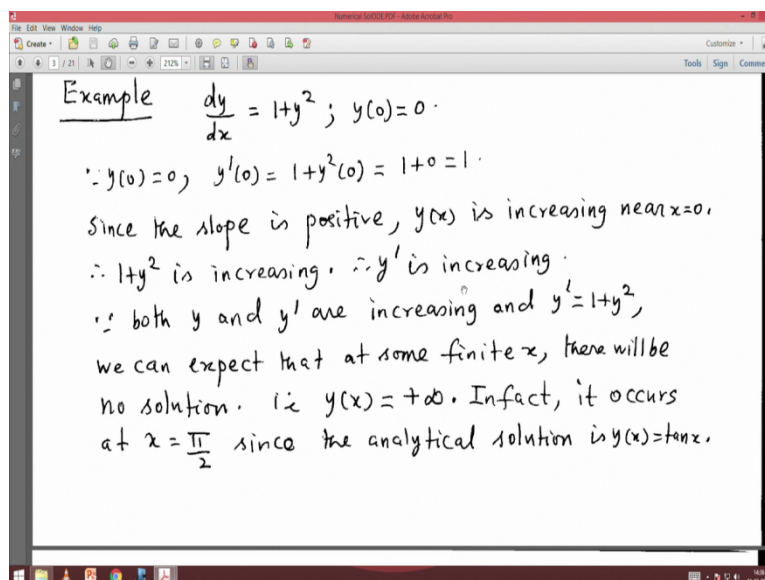 Numerical SolODE.PDF - Adobe Acrobat Pro
File Edit View Window Help
Create Customize
3 / 21 212% Tools Sign Comme
Example dy/dx = 1+y² ; y(0)=0.
∵ y(0)=0, y'(0) = 1+y²(0) = 1+0 = 1.
Since the slope is positive, y(x) is increasing near x=0.
∴ 1+y² is increasing. ∴ y' is increasing.
∵ both y and y' are increasing and y'=1+y²,
we can expect that at some finite x, there will be
no solution. ie y(x) = +∞. Infact, it occurs
at x = π/2 since the analytical solution is y(x)=tanx.